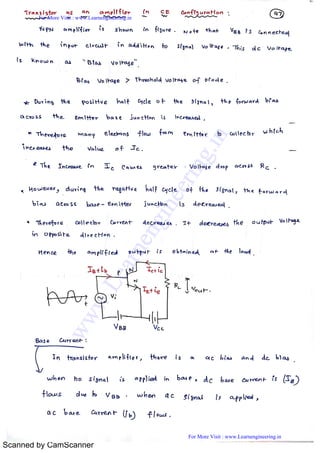 Transistor as an amplifier in CE Configuration : 97
For More Visit : www.Learnengineering.in
 amplifier is shown in figure. Note that VBB is connected
with the input circuit in addition to signal voltage. This dc voltage
is known as "Bias voltage".
Bias voltage > Threshold voltage of diode.
* During the positive half cycle of the signal, the forward bias
across the Emitter base junction is increased.
* Therefore many Electrons flow from Emitter to Collector which
increases the value of Ic.
* The Increase in Ic causes greater voltage drop across Rc.
* However, during the negative half cycle of the signal, the forward
bias across base-Emitter junction is decreased.
* Therefore collector current decreases. It decreases the output voltage
in opposite direction.
Hence the amplified output is obtained at the load.
IB+ib P Ic+ic
N
N
IE+iE
RL Vout.
Vi
VBB Vcc
Base Current:
In transistor amplifier, there is a ac bias and dc bias.
when no signal is applied in base, dc base current is (IB)
flows due to VBB. when ac signal is applied,
ac base current (ib) flows.
www.Learnengineering.in
For More Visit : www.Learnengineering.in
Scanned by CamScanner